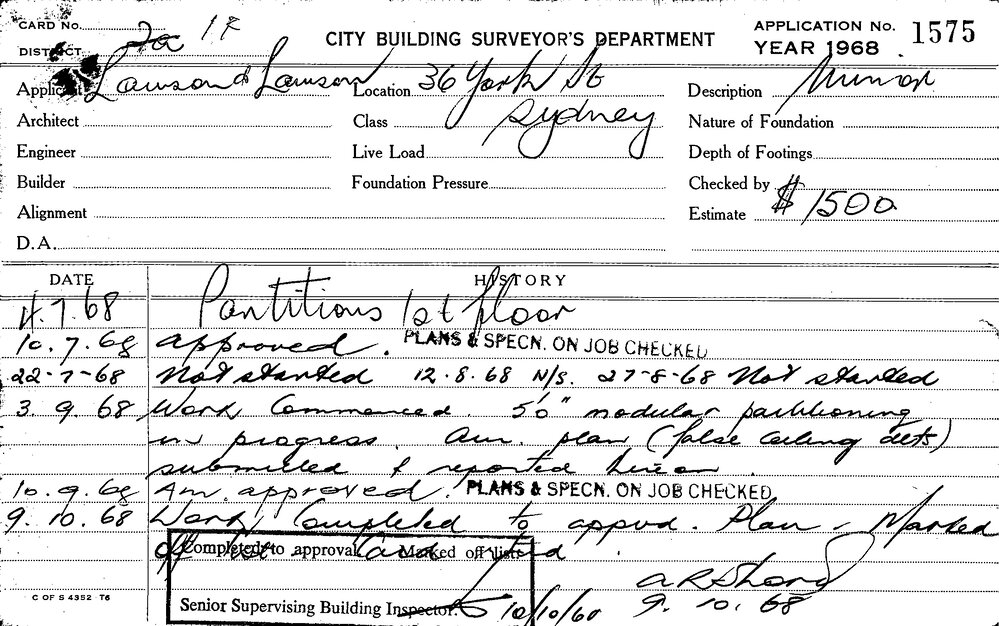 CARD No.
1R
CITY BUILDING SURVEYOR'S DEPARTMENT
APPLICATION No. 1575
DISTRICT
YEAR 1968
Applicant Lawson & Lawson Location 36 York St Description Minor
Architect Class Sydney Nature of Foundation
Engineer Live Load Depth of Footings
Builder Foundation Pressure Checked by
Alignment Estimate $1500
D.A.
DATE HISTORY
4.7.68 Partitions 1st floor
10.7.68 approved. PLANS & SPECN. ON JOB CHECKED
22-7-68 Not started 12.8.68 N/S. 27-8-68 Not started
3.9.68 Work Commenced. 5'0" modular partitioning
in progress. Am. plan (false ceiling dets)
submitted & reported hereon.
10.9.68 Am. approved. PLANS & SPECN. ON JOB CHECKED
9.10.68 Work Completed to appvd. Plan - Marked
off list Card
Completed to approval Marked off list
A R Sharp
Senior Supervising Building Inspector. 10/10/68 9.10.68
C OF S 4352 T6